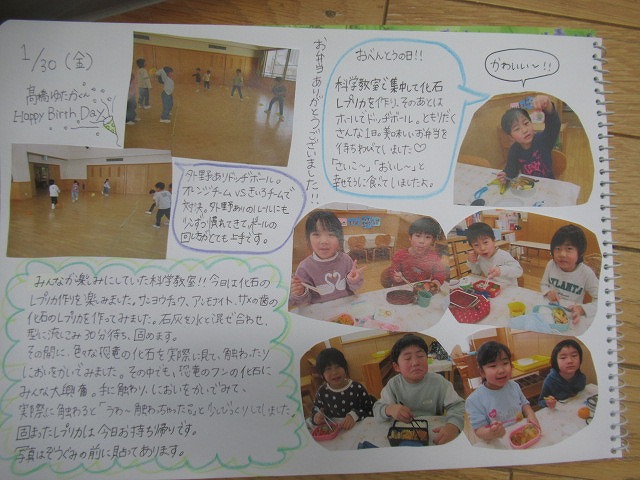 1/30 (金)
髙橋ゆたかくん
Happy Birth Day
お弁当ありがとうございました!!
おべんとうの日!!
科学教室で集中して化石
レプリカを作り、そのあとは
ホールでドッヂボール。もりだく
さんな1日。美味しいお弁当を
待ちわびていました♡
「さいこ〜」「おいし〜」と
幸せそうに食べていましたよ。
かわいい〜!!
外野ありドッヂボール。
オレンジチーム VS きいろチームで
対決。外野ありのルールにも
少しずつ慣れてきて、ボールの
回し方がとても上手です。
みんなが楽しみにしていた科学教室!!今日は化石の
レプリカ作りを楽しみました。サンヨウチュウ、アンモナイト、サメの歯の
化石のレプリカを作ってみました。石灰を水と混ぜ合わせ、
型に流しこみ30分待ち、固めます。
その間に、色々な恐竜の化石を実際に見て、触わったり
においをかいでみました。その中でも、恐竜のフンの化石に
みんな大興奮。手に触わり、においをかいでみて、
実際に触わると「うわ〜触わっちゃった。」とびっくりしていました。
固まったレプリカは今日お持ち帰りです。
写真はぞうぐみの前に貼ってあります。
ATLANTA